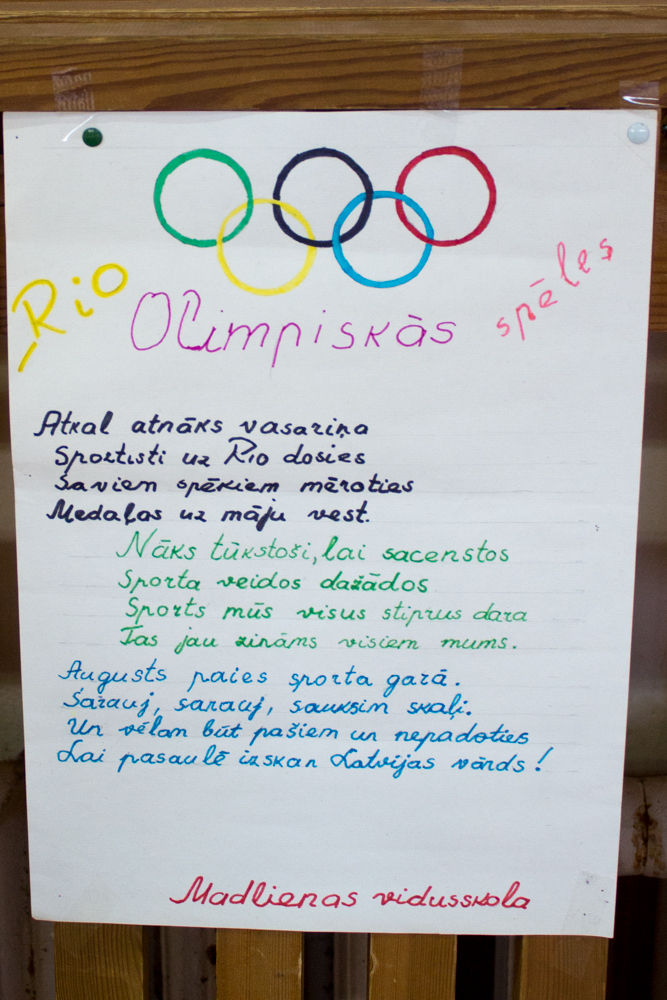 Rio Olimpiskās spēles
Atkal atnāks vasariņa
Sportisti uz Rio dosies
Saviem spēkiem mēroties
Medaļas uz māju vest.
Nāks tūkstoši, lai sacenstos
Sporta veidos dažādos
Sports mūs visus stiprus dara
Tas jau zināms visiem mums.
Augusts paies sporta garā.
Sarauj, sarauj, sauksim skaļi.
Un vēlam būt pašiem un nepadoties
Lai pasaulē izskan Latvijas vārds!
Madlienas vidusskola